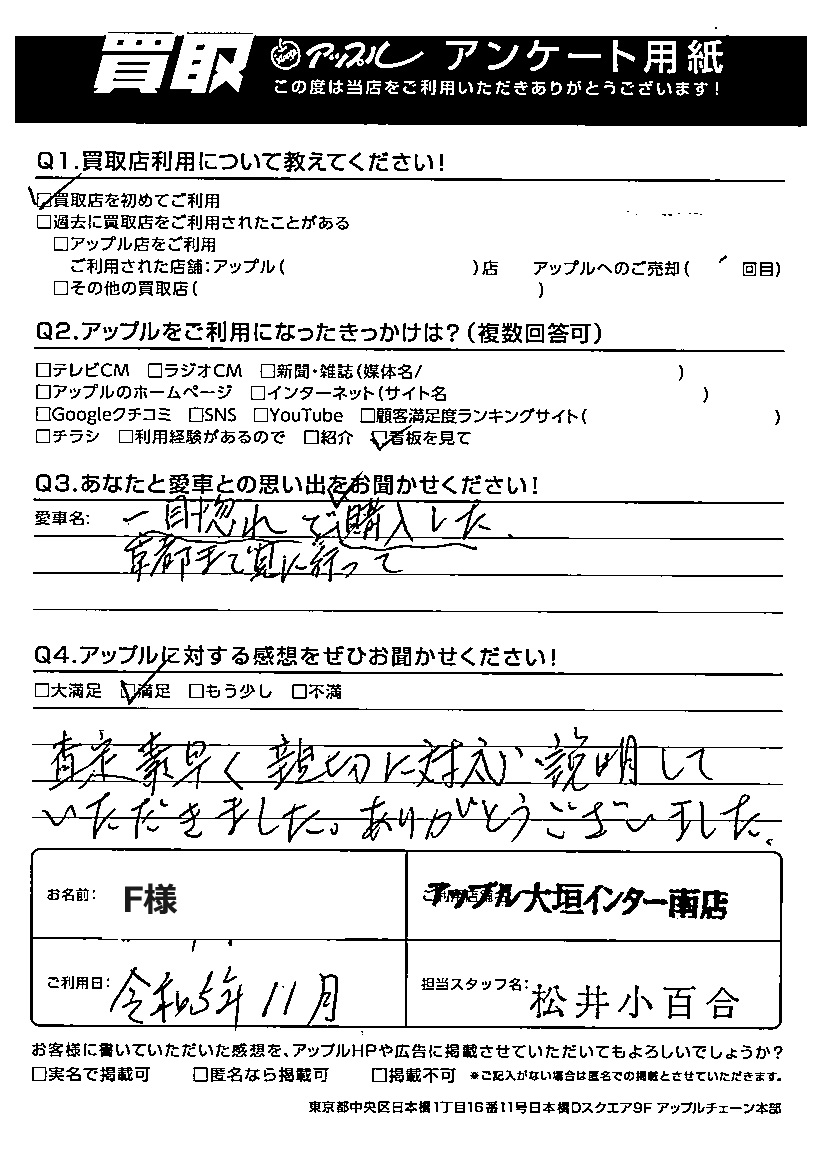 買取 アップル アンケート用紙
この度は当店をご利用いただきありがとうございます!
Q1.買取店利用について教えてください!
☑買取店を初めてご利用
□過去に買取店をご利用されたことがある
□アップル店をご利用
ご利用された店舗:アップル( )店 アップルへのご売却( 回目)
□その他の買取店( )
Q2.アップルをご利用になったきっかけは?(複数回答可)
□テレビCM □ラジオCM □新聞・雑誌(媒体名/ )
□アップルのホームページ □インターネット(サイト名 )
□Googleクチコミ □SNS □YouTube □顧客満足度ランキングサイト( )
□チラシ □利用経験があるので □紹介 ☑看板を見て
Q3.あなたと愛車との思い出をお聞かせください!
愛車名: 一目惚れで購入した.
京都まで見に行って
Q4.アップルに対する感想をぜひお聞かせください!
□大満足 ☑満足 □もう少し □不満
査定素早く親切に対応い説明して
いただきました。ありがとうございました。
お名前: F様 アップル大垣インター南店
ご利用日: 令和5年11月 担当スタッフ名: 松井小百合
お客様に書いていただいた感想を、アップルHPや広告に掲載させていただいてもよろしいでしょうか?
□実名で掲載可 □匿名なら掲載可 □掲載不可 ※ご記入がない場合は匿名での掲載とさせていただきます。
東京都中央区日本橋1丁目16番11号日本橋Dスクエア9F アップルチェーン本部